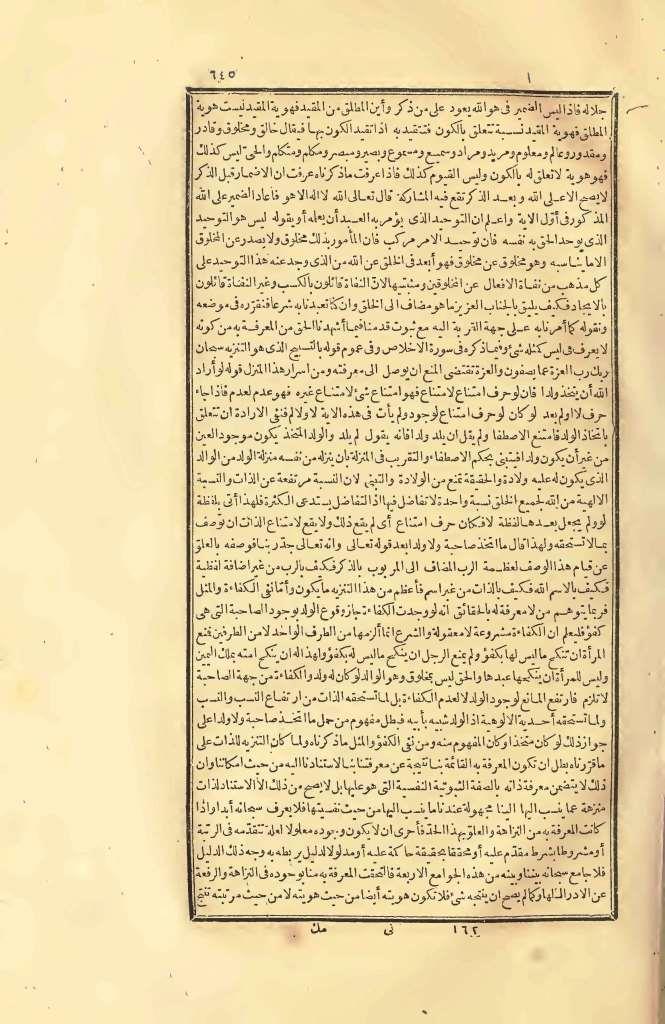 ٦٤٥
جلاله فاذا ليس الضمير فى هو الله يعود على من ذكر وأين المطلق من المقيد فهوية المقيد ليست هوية
المطلق فهوية المقيد نسبة تتعلق بالكون فتتقيد به اذا تقيد الكون بها فيقال خالق ومخلوق وقادر
ومقدور وعالم ومعلوم ومريد ومراد وسميع ومسموع وبصير ومبصر ومكلم ومتكلم والحى ليس كذلك
فهو هوية لا تعلق له بالكون وليس القيوم كذلك فاذا عرفت ماذكرناه عرفت ان الاضمار قبل الذكر
لا يصح الا على الله وبعد الذكر تقع فيه المشاركة قال تعالى الله لا اله الا هو فأعاد الضمير على الله
المذكور فى أول الآية واعلم ان التوحيد الذى يؤمر به العبد أن يعلمه أو يقوله ليس هو التوحيد
الذى يوحد الحق به نفسه فان توحيد الامر مركب فان المأمور بذلك مخلوق ولا يصدر عن المخلوق
الا ما يناسبه وهو مخلوق عن مخلوق فهو أبعد فى الخلق عن الله من الذى وجد عنه هذا التوحيد على
كل مذهب من نفاة الافعال عن المخلوقين ومثبتيها لان النفاة قائلون بالكسب وغير النفاة قائلون
بالايجاد فكيف يليق بالجناب العزيز ما هو مضاف الى الخلق وان كنا تعبدنا به شرعا فنقرره فى موضعه
ونقوله كما أمرنا به على جهة القربة اليه مع ثبوت قدمنا فيما أشهدنا الحق من المعرفة به من كونه
لا يعرف فى ليس كمثله شئ وفيما ذكره فى سورة الاخلاص وفى عموم قوله بالتسبيح الذى هو التنزيه سبحان
ربك رب العزة عما يصفون والعزة تقتضى المنع ان يوصل الى معرفته ومن اسرار هذا المنزل قوله لو أراد
الله أن يتخذ ولدا فان لو حرف امتناع لامتناع فهو امتناع شئ لامتناع غيره فهو عدم لعدم فاذا جاء
حرف لا او لم بعد لو كان لو حرف امتناع لوجود ولم يأت فى هذه الآية لا ولا لم فنفى الارادة ان تتعلق
باتخاذ الولد فامتنع الاصطفا ولم يقل ان يلد ولدا فانه يقول لم يلد والولد المتخذ يكون موجود العين
من غير أن يكون ولدا فيتبنى بحكم الاصطفاء والتقريب فى المنزلة بان ينزله من نفسه منزلة الولد من الوالد
الذى يكون له عليه ولادة والحقيقة تمنع من الولادة والتبنى لان النسبة مرتفعة عن الذات والنسبة
الالهية من الله لجميع الخلق نسبة واحدة لا تفاضل فيها اذ التفاضل يستدعى الكثرة فلهذا أتى بلفظة
لو ولم يجعل بعدها لفظة لا فكان حرف امتناع أى لم يقع ذلك ولا يقع لامتناع الذات ان توصف
بما لا تستحقه ولهذا قال ما اتخذ صاحبة ولا ولدا بعد قوله تعالى وانه تعالى جد ربنا فوصفه بالعلو
عن قيام هذا الوصف لعظمة الرب المضاف الى المربوب بالذكر فكيف بالرب من غير اضافة لفظية
فكيف بالاسم الله فكيف بالذات من غير اسم فأعظم من هذا التنزيه ما يكون وأما نفى الكفاءة والمثل
فربما يتوهم من لا معرفة له بالحقائق أنه لو وجدت الكفاءة جاز وقوع الولد بوجود الصاحبة التى هى
كفؤ فليعلم ان الكفاءة مشروعة لا معقولة والشرع انما ألزمها من الطرف الواحد لا من الطرفين فمنع
المرأة ان تنكح ما ليس لها بكفؤ ولم يمنع الرجل ان ينكح ما ليس له بكفؤ ولهذا له ان ينكح امته بملك اليمين
وليس للمرأة أن ينكحها عبدها والحق ليس بمخلوق وهو الوالد لو كان له ولد والكفاءة من جهة الصاحبة
لا تلزم فارتفع المانع لوجود الولد لا لعدم الكفاءة بل لما تستحقه الذات من ارتفاع النسب والنسب
ولما تستحقه أحدية الالوهة اذ الولد شبيه بأبيه فبطل مفهوم من حمل ما اتخذ صاحبة ولا ولدا على
جواز ذلك لو كان متخذا وكان المفهوم منه ومن نفى الكفؤ والمثل ما ذكرناه ولما كان التنزيه للذات على
ما قررناه بطل ان تكون المعرفة به القائمة بنا نتيجة عن معرفتنا بنا لاستنادنا اليه من حيث امكاننا وان
ذلك لا يتضمن معرفة ذاته بالصفة الثبوتية النفسية التى هو عليها بل لا يصح من ذلك الا الاستناد لذات
منزهة عما ينسب الينا مجهولة عندنا ما ينسب اليها من حيث نفسيتها فلا يعرف سبحانه أبدا واذا
كانت المعرفة به من النزاهة والعلو بهذا الحد فأحرى ان لا يكون وجوده معلولا لعلة تتقدمه فى الرتبة
أو مشروطا بشرط مقدم عليه أو محققا بحقيقة حاكمة عليه أو مدلولا لدليل يربطه به وجه ذلك الدليل
فلا جامع سبحانه بيننا وبينه من هذه الجوامع الاربعة فالتحقت المعرفة به منا بوجوده فى النزاهة والرفعة
عن الادراك لها وكما لم يصح ان ينتجه شئ فلا تكون هويته أيضا من حيث هويته لا من حيث مرتبته تنتج
١٦٢ نى مك